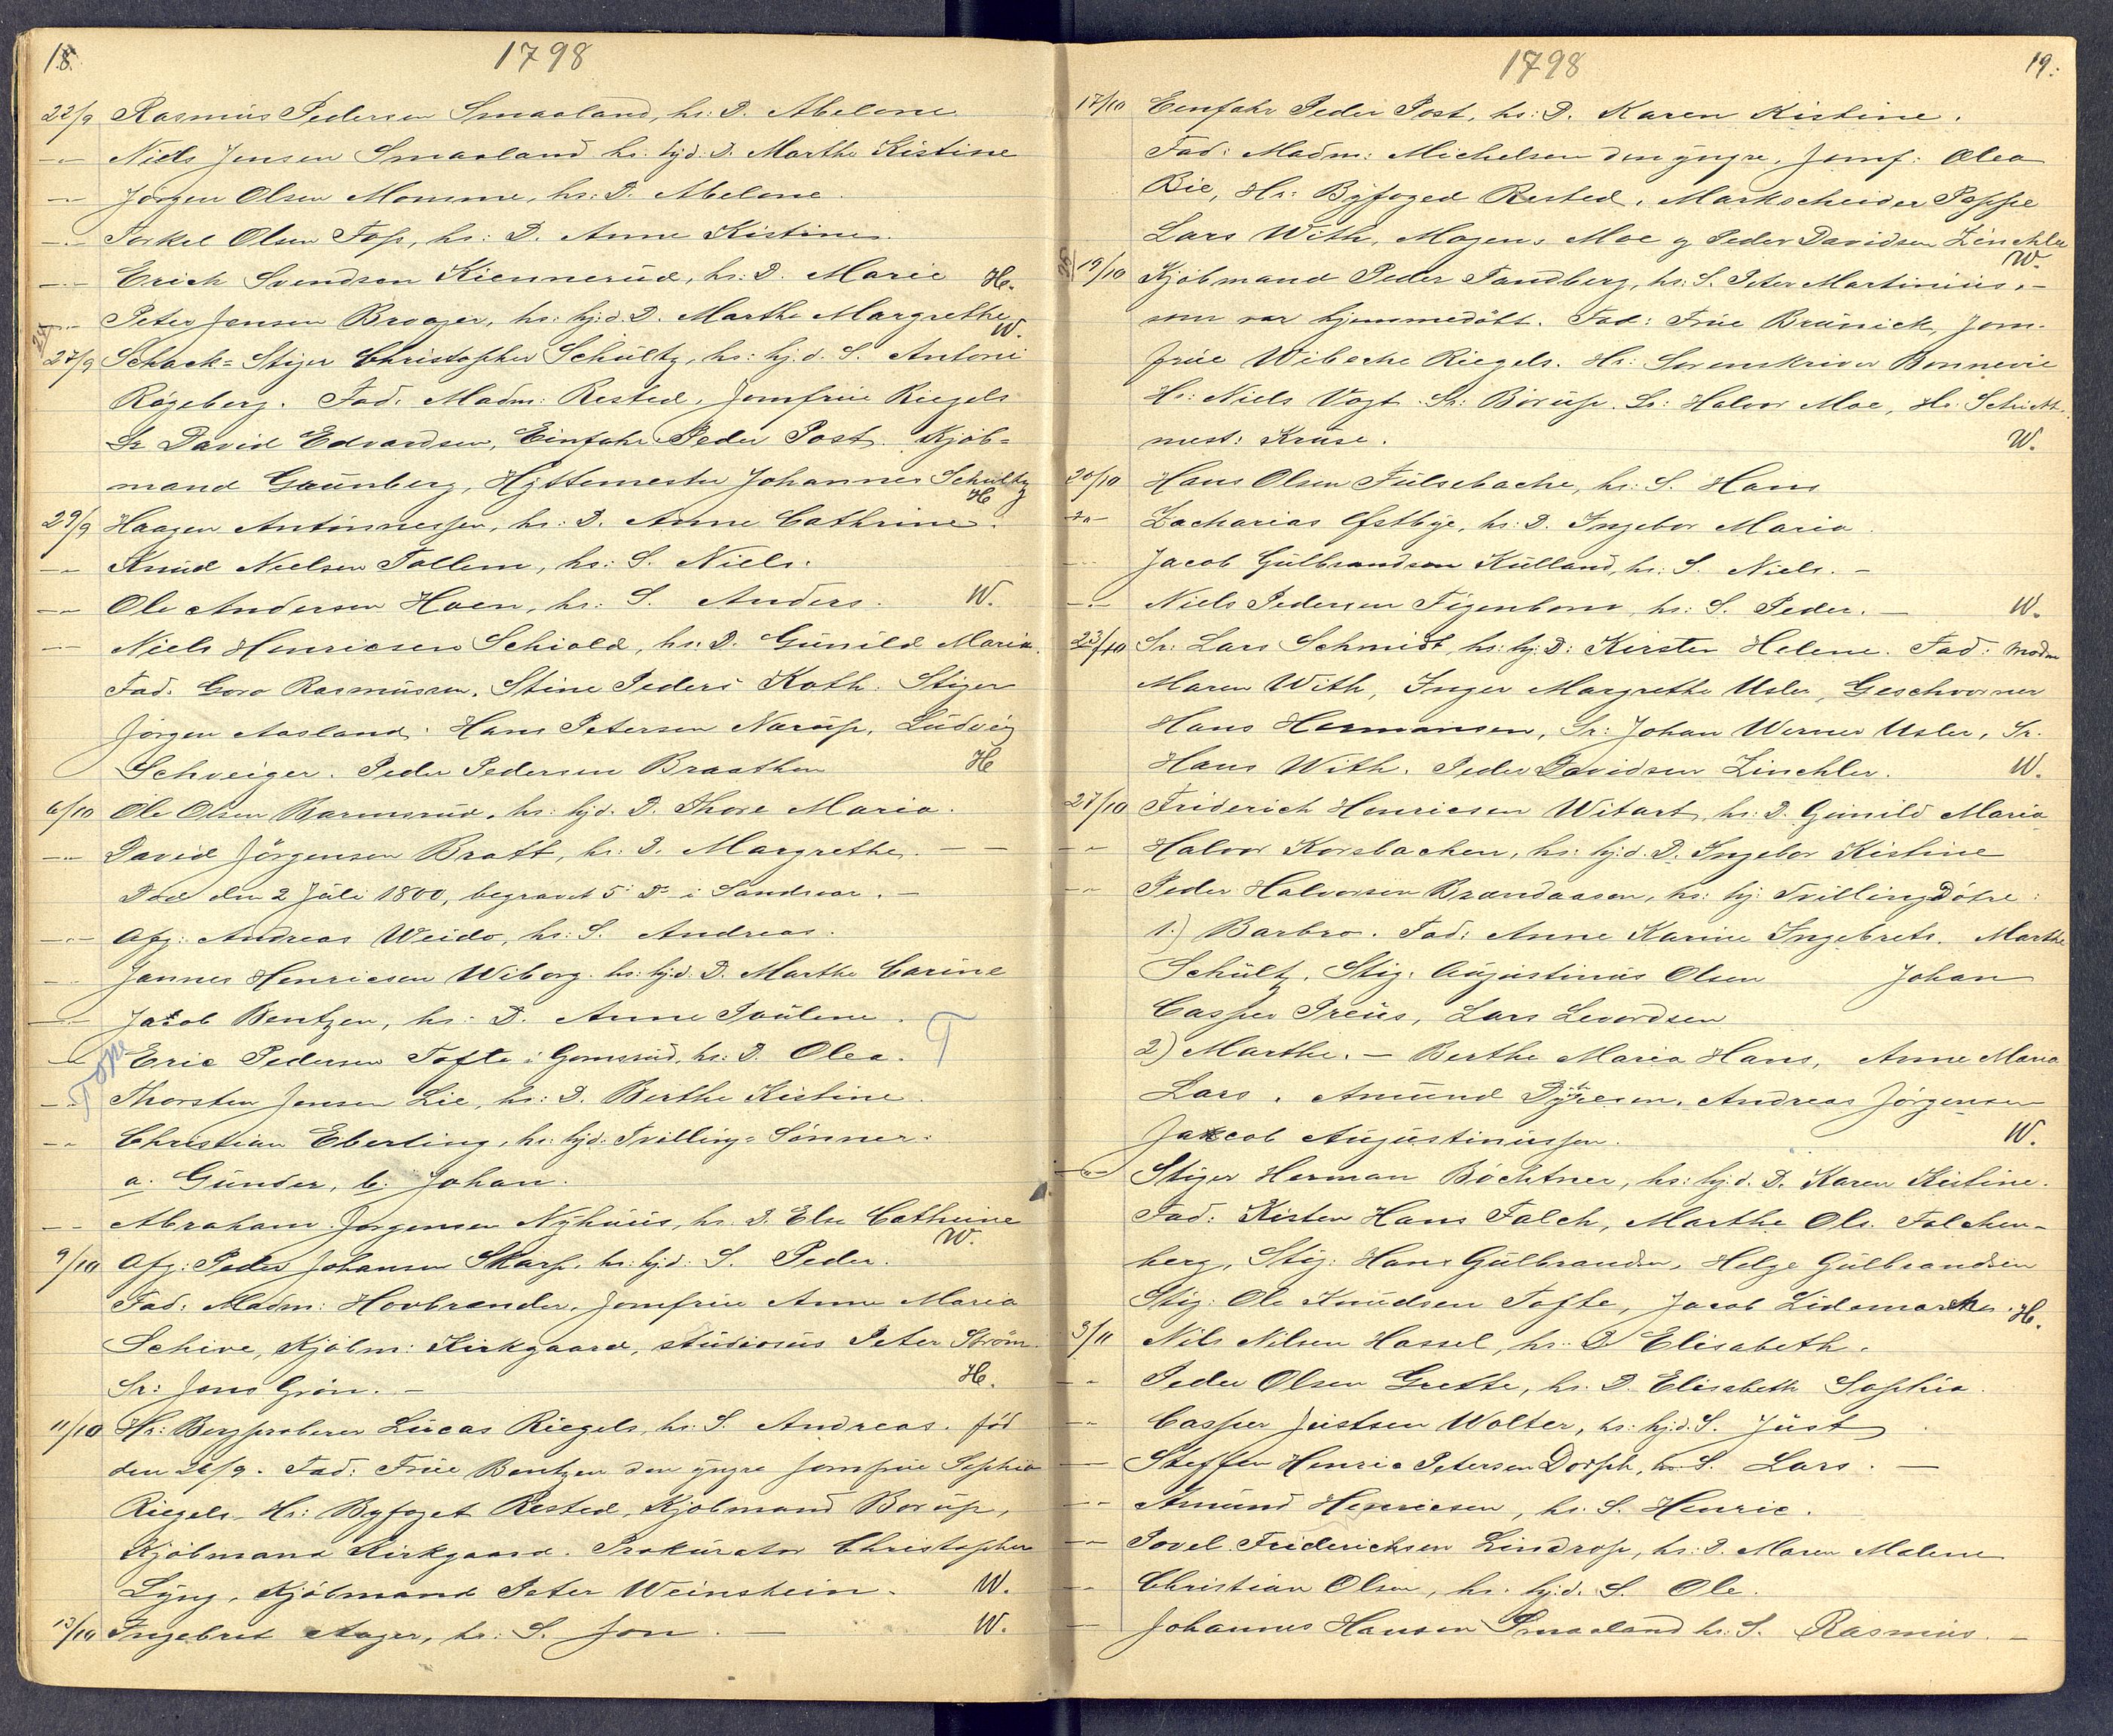 18.
1798
22/9 Rasmus Pedersen Smaaland, hs: D. Abelone
-"- Niels Jensen Smaaland hs: hjd: D. Marthe Kistine
-"- Jörgen Olsen Momme, hs: D. Abelone.
-"- Torkel Olsen Fos, hs: D. Anne Kistine.
-"- Erich Svendsen Kiennerud, hs: D. Marie H.
-"- Peter Jensen Broager, hs: hj.d. D. Marthe Margrethe W.
27/9 Schack-Stiger Christopher Schultz, hs: hj.d. S. Antoni
Rögeberg. Fad. Madm: Rested, Jomfrue Riegels
Sr David Edvardsen, Einfahr Peder Post. Kjöb-
mand Graunberg, Hyttemester Johannes Schultz H
29/9 Haagen Antonnessen, hs: D. Anne Cathrine.
-"- Knud Nielsen Tollern, hs: S. Niels.
-"- Ole Andersen Hoen, hs: S. Anders. W.
-"- Niels Henricsen Schiold, hs: D. Gunild Maria.
Fad. Goro Rasmussen, Stine Peders Kath. Stiger
Jörgen Aasland. Hans Petersen Narup, Ludvig
Schveiger. Peder Pedersen Braathen H
6/10 Ole Olsen Barmsrud, hs: hjd. D. Thore Maria.
-"- David Jörgensen Bratt, hs: D. Margrethe. - -
Död den 2 Juli 1800, begravet 5' Ds i Sandsvær. -
-"- Afg: Andreas Weido, hs: S. Andreas.
-"- Jannes Henricsen Wiborg. hs: hjd: D. Marthe Carine
-"- Jacob Bentzen, hs: D. Anne Paulene. T
-"- Eric Pedersen Tofte i Gomsrud, hs: D. Olea.
Tope
-"- Thorsten Jensen Lie, hs: D. Birthe Kistine.
-"- Christian Eberling, hs: hjd. Tvilling-Sönner:
a. Gunder, b. Johan.
-"- Abraham Jörgensen Nyhuus, hs. D. Else Cathrine W.
9/10 Afg: Peder Johansen Skarp, hs: hjd: S. Peder.
Fad: Madm: Hovbrender, Jomfrue Anne Maria
Schive, Kjöbm: Kirkgaard, studiosus Peter Ström
Sr: Jens Grön. - H.
11/10 Hr: Bergproberer Lucas Riegels, hs: S. Andreas. föd
den 26/9. Fad: Frue Bentzen den yngre Jomfrue Sophia
Riegels, Hr: Byfoget Rested, Kjöbmand Borup,
Kjöbmand Kirkgaard. Prokurator Christopher
Lyng, Kjöbmand Peter Weinstein. W.
13/10 Ingebret Aager, hs: S. Jon. - W.
1798
19:
17/10 Einfahr Peder Post, hs: D. Karen Kistine.
Fad: Madm: Michelsen den yngre, Jomf: Alea
Bie, Hr: Byfoged Rested, Markscheider Poppe
Lars With, Mogens Moe g Peder Davidsen Linchler W.
19/10 Kjöbmand Peder Tandberg, hs: S. Peter Martinius, -
som var hjemmedöbt. Fad: Frue Brünick, Jom-
frue Wibecke Riegels. Hr: Sorenskriver Bonnevie
Hr: Niels Vogt. Sr: Borup. Sr: Halvor Moe, Hr. Schicht
mest: Kruse. W.
20/10 Hans Olsen Fulsebache, hs: S. Hans
-"- Zacharias Östbye, hs: D. Ingebor Maria.
Jacob Gulbrandsen Kulland, hs: S. Niels. -
-"- Niels Pedersen Figenbom, hs: S. Peder. - W.
23/10 Sr: Lars Schmidt, hs: hj: D: Kirsten Helene. Fad: Madm
Maren With, Inger Margrethe Usler, Geschworner
Hans Hermansen, Sr: Johan Werner Usler, Sr.
Hans With. Peder Davidsen Linchler. W.
27/10 Friderich Henricsen Witart, hs: D. Gunild Maria
-"- Halvor Korsbachen, hs: hj.d. D. Ingebor Kistine
-"- Peder Halvorsen Brandaasen, hs: hj: TvillingDötre:
1.) Barbro. Fad: Anne Karine Ingebrets. Marthe
Schultz, Stig: Augustinus Olsen Johan
Casper Preus, Lars Levordsen
2) Marthe. - Berthe Maria Hans, Anne Maria
Lars. Amund Dyresen, Andreas Jörgensen
Jacob Augustinussen. W.
-"- Stiger Herman Bochtner, hs: hj.d. D. Karen Kistine.
Fad: Kisten Hans Falch, Marthe Ols. Falchen-
berg, Stig: Hans Gulbrandsen, Helge Gulbrandsen
Stig: Ole Knudsen Tofte, Jacob Lidemarken. H.
3/11 Nils Nilsen Hassel, hs: D. Elisabeth.
-"- Peder Olsen Grette, hs: D. Elisabeth Sophia.
-"- Casper Justsen Wolter, hs: hj.d. S. Just
-"- Steffen Henric Petersen Dorph, hs: S. Lars. -
-"- Amund Henricsen, hs: S. Henric.
-"- Povel Friderichsen Lindrop, hs: D. Maren Malene
-"- Christian Olsen, hs: hj.d. S. Ole.
- Johannes Hansen Smaaland hs: S. Rasmus. -